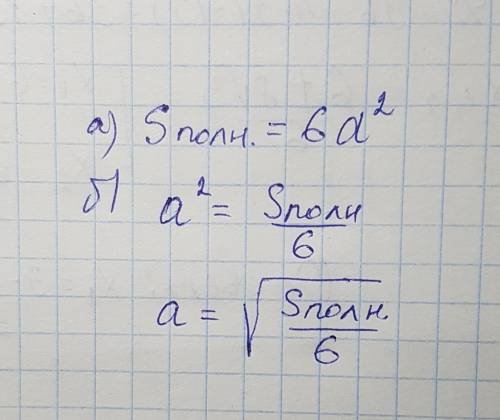 а) Sполн. = 6a²
б) a² = Sполн / 6
a = √(Sполн. / 6)